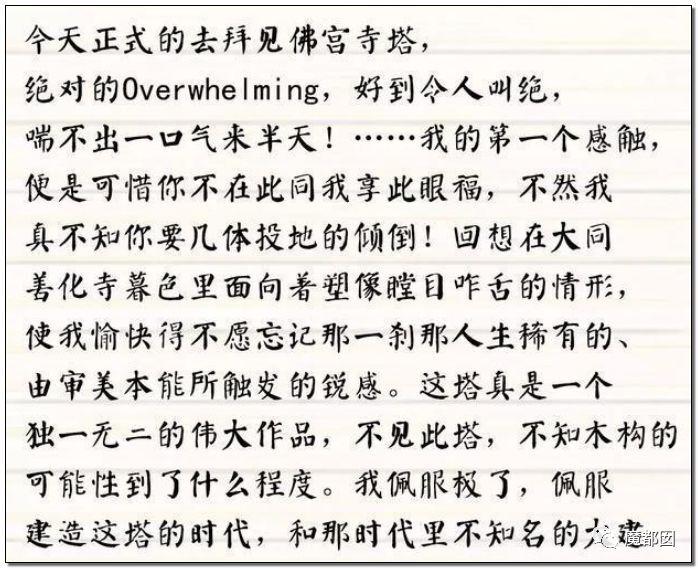 今天正式的去拜见佛宫寺塔，
绝对的Overwhelming，好到令人叫绝，
喘不出一口气来半天！……我的第一个感触，
便是可惜你不在此同我享此眼福，不然我
真不知你要几体投地的倾倒！回想在大同
善化寺暮色里面向着塑像瞠目咋舌的情形，
使我愉快得不愿忘记那一刹那人生稀有的、
由审美本能所触发的锐感。这塔真是一个
独一无二的伟大作品，不见此塔，不知木构的
可能性到了什么程度。我佩服极了，佩服
建造这塔的时代，和那时代里不知名的大建
魔都囡